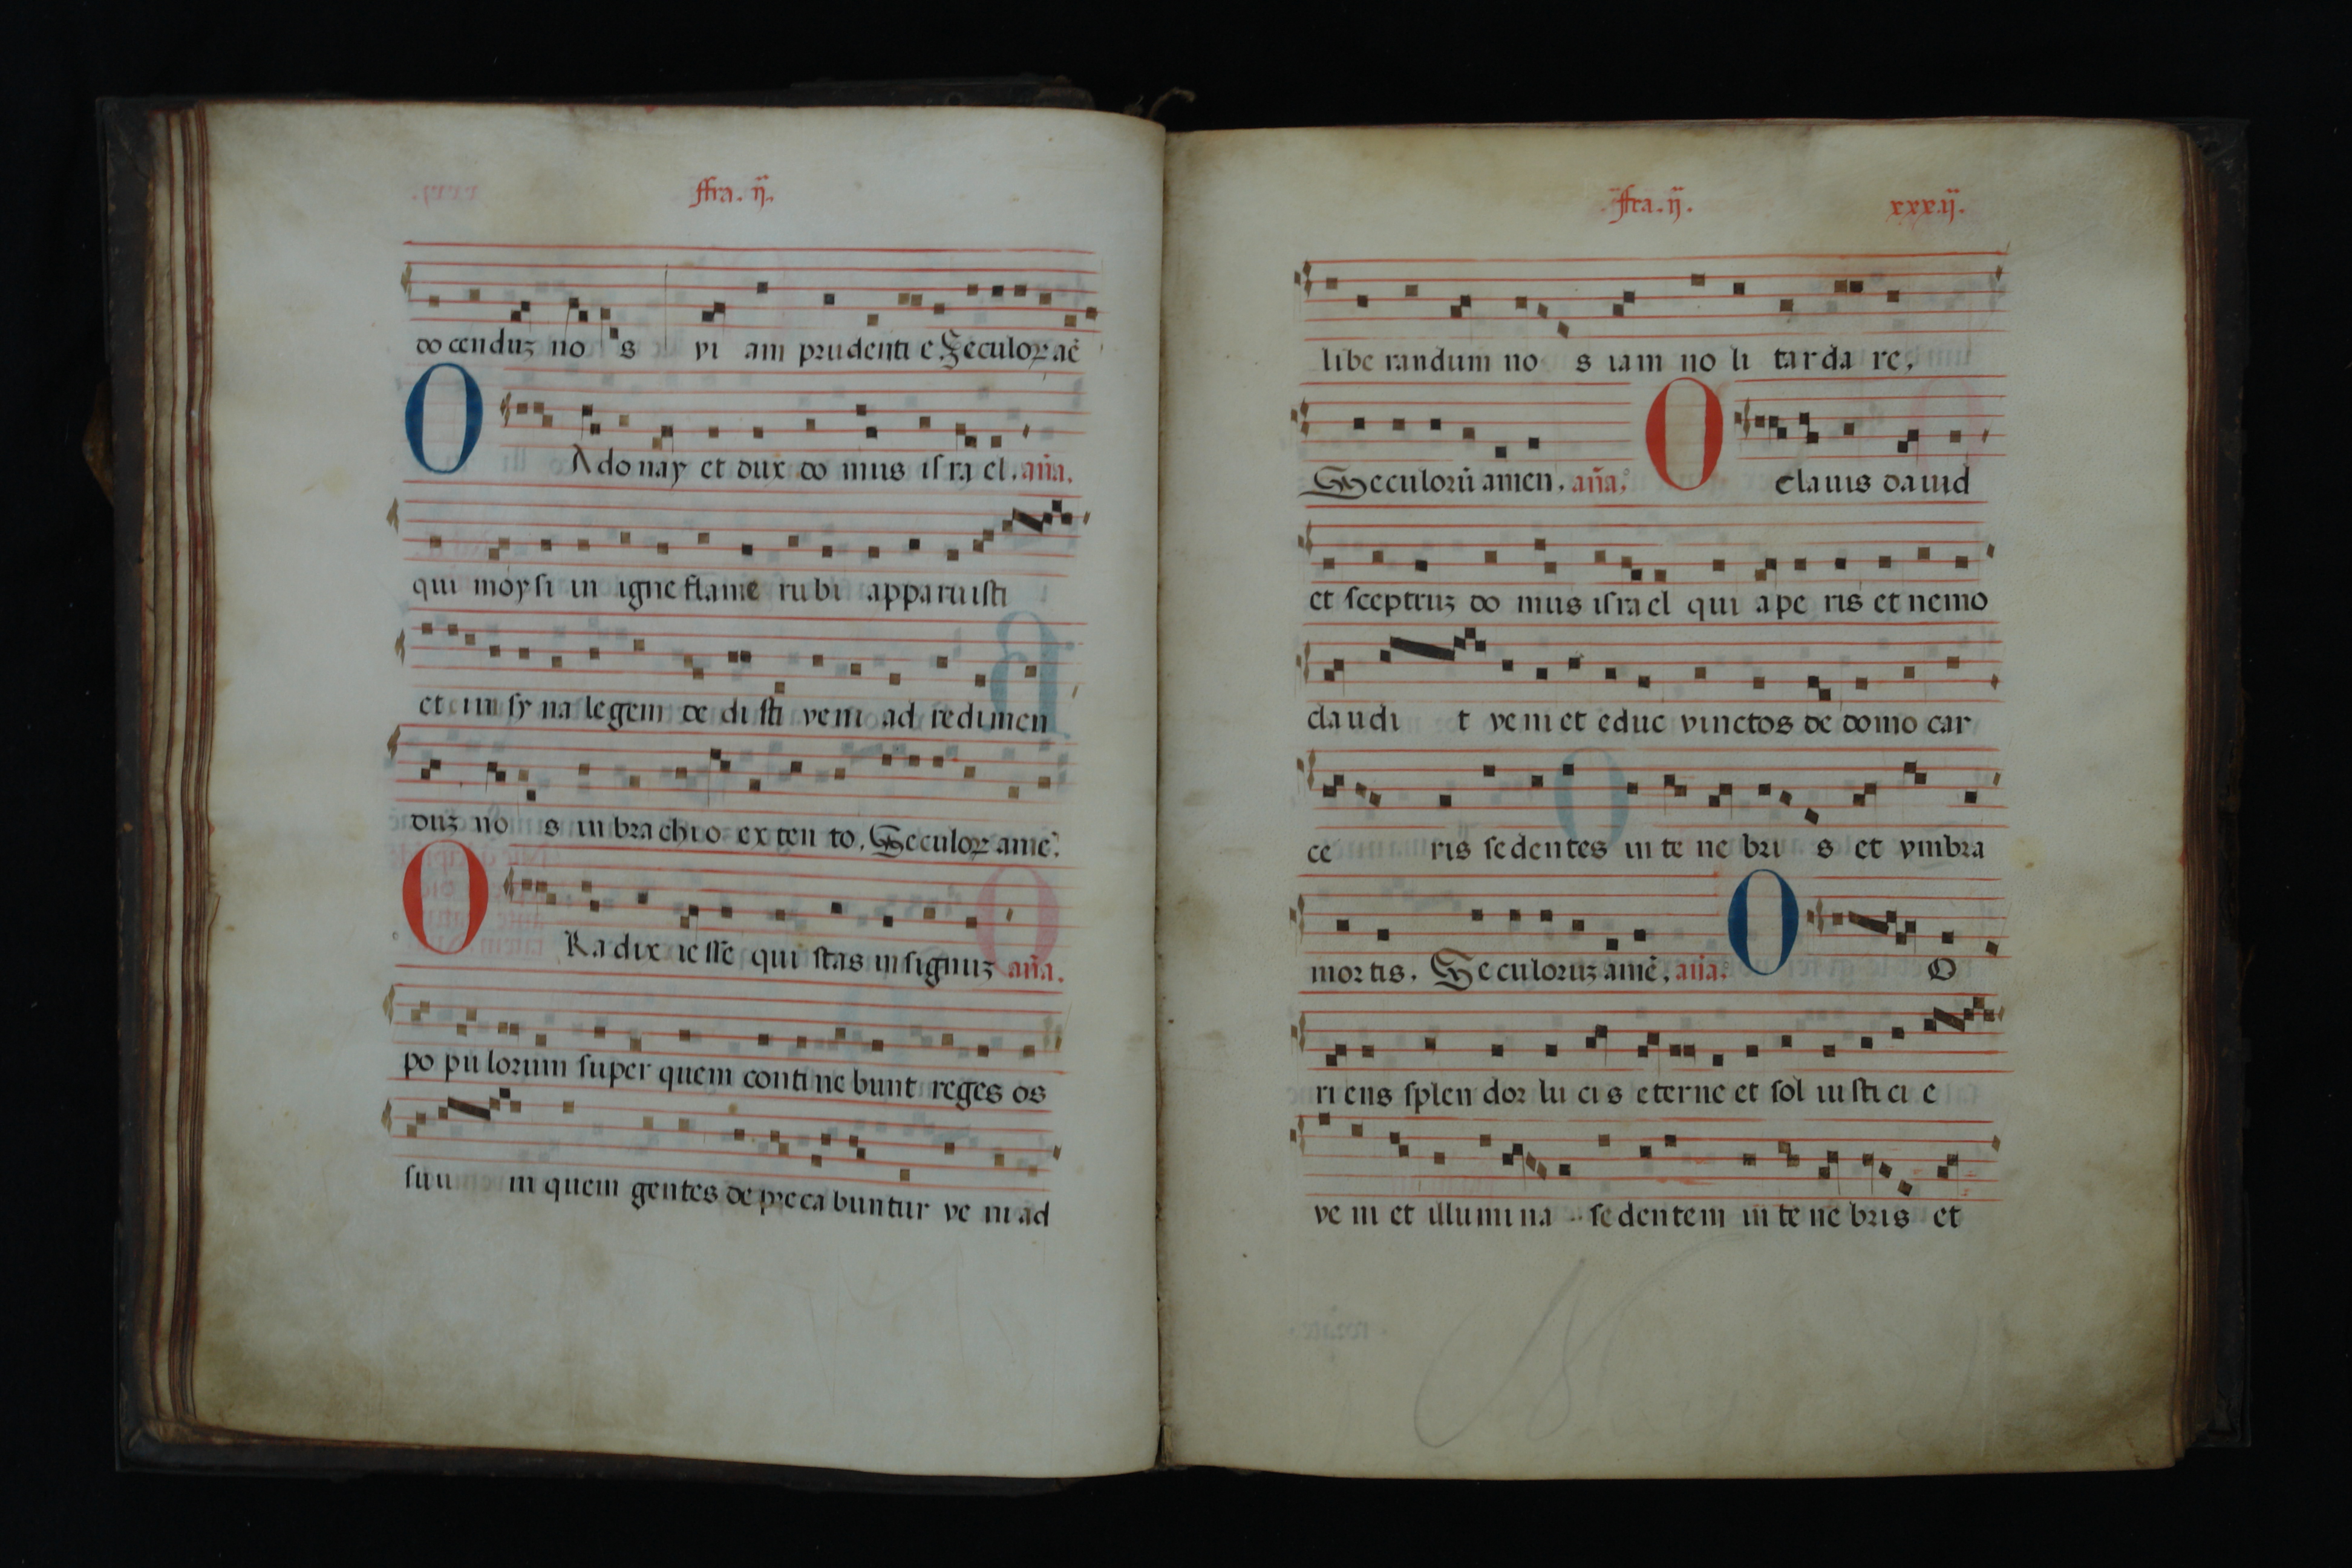 ffra. ij.
docenduz no s vi am prudenti e Seculoꝝ aē
O Adonay et dux do mus iſ ra el. an̄a.
qui moyſi in igne flame rubi apparuiſti
et in ſy na legem de di ſti veni ad redimen
duz no s in brachio ex ten to. Seculoꝝ amē.
O Radix ieſſe qui ſtas in ſignuz an̄a.
po pu lorum ſuper quem conti ne bunt reges os
ſuu m quem gentes de preca buntur ve ni ad
ffra. ij. xxxij.
libe randum no s iam no li tarda re.
Seculorū amen. an̄a. O clauis dauid
et ſceptruz do mus iſrael qui ape ris et nemo
claudi t veni et educ vinctos de domo car
ce ris ſedentes in te ne bri s et vmbra
mortis. Seculoruz amē. an̄a. O O
ri ens ſplen dor lu cis eterne et ſol iuſti ci e
ve ni et illumi na ſedentem in te ne bris et